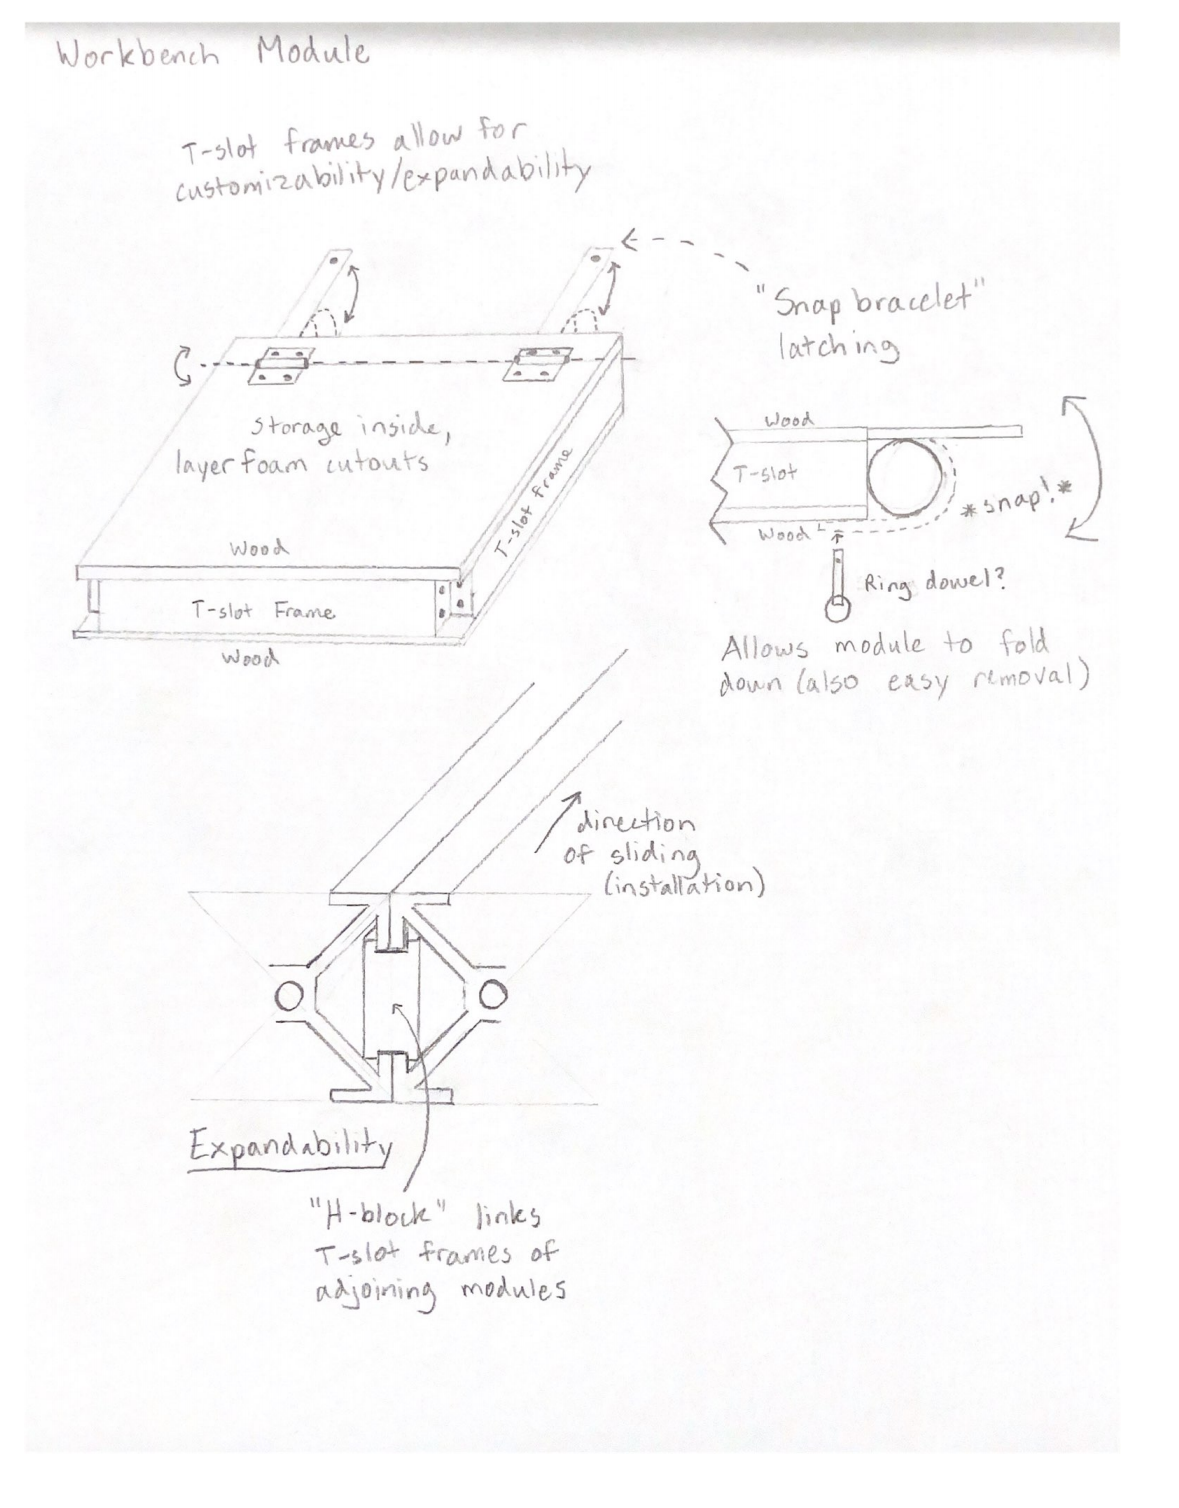 Workbench Module
T-slot frames allow for
customizability/expandability
"Snap bracelet"
latching
storage inside,
layer foam cutouts
Wood
T-slot Frame
T-slot Frame
Wood
Wood
T-slot
Wood
*snap!*
Ring dowel?
Allows module to fold
down (also easy removal)
direction
of sliding
(installation)
Expandability
"H-block" links
T-slot frames of
adjoining modules